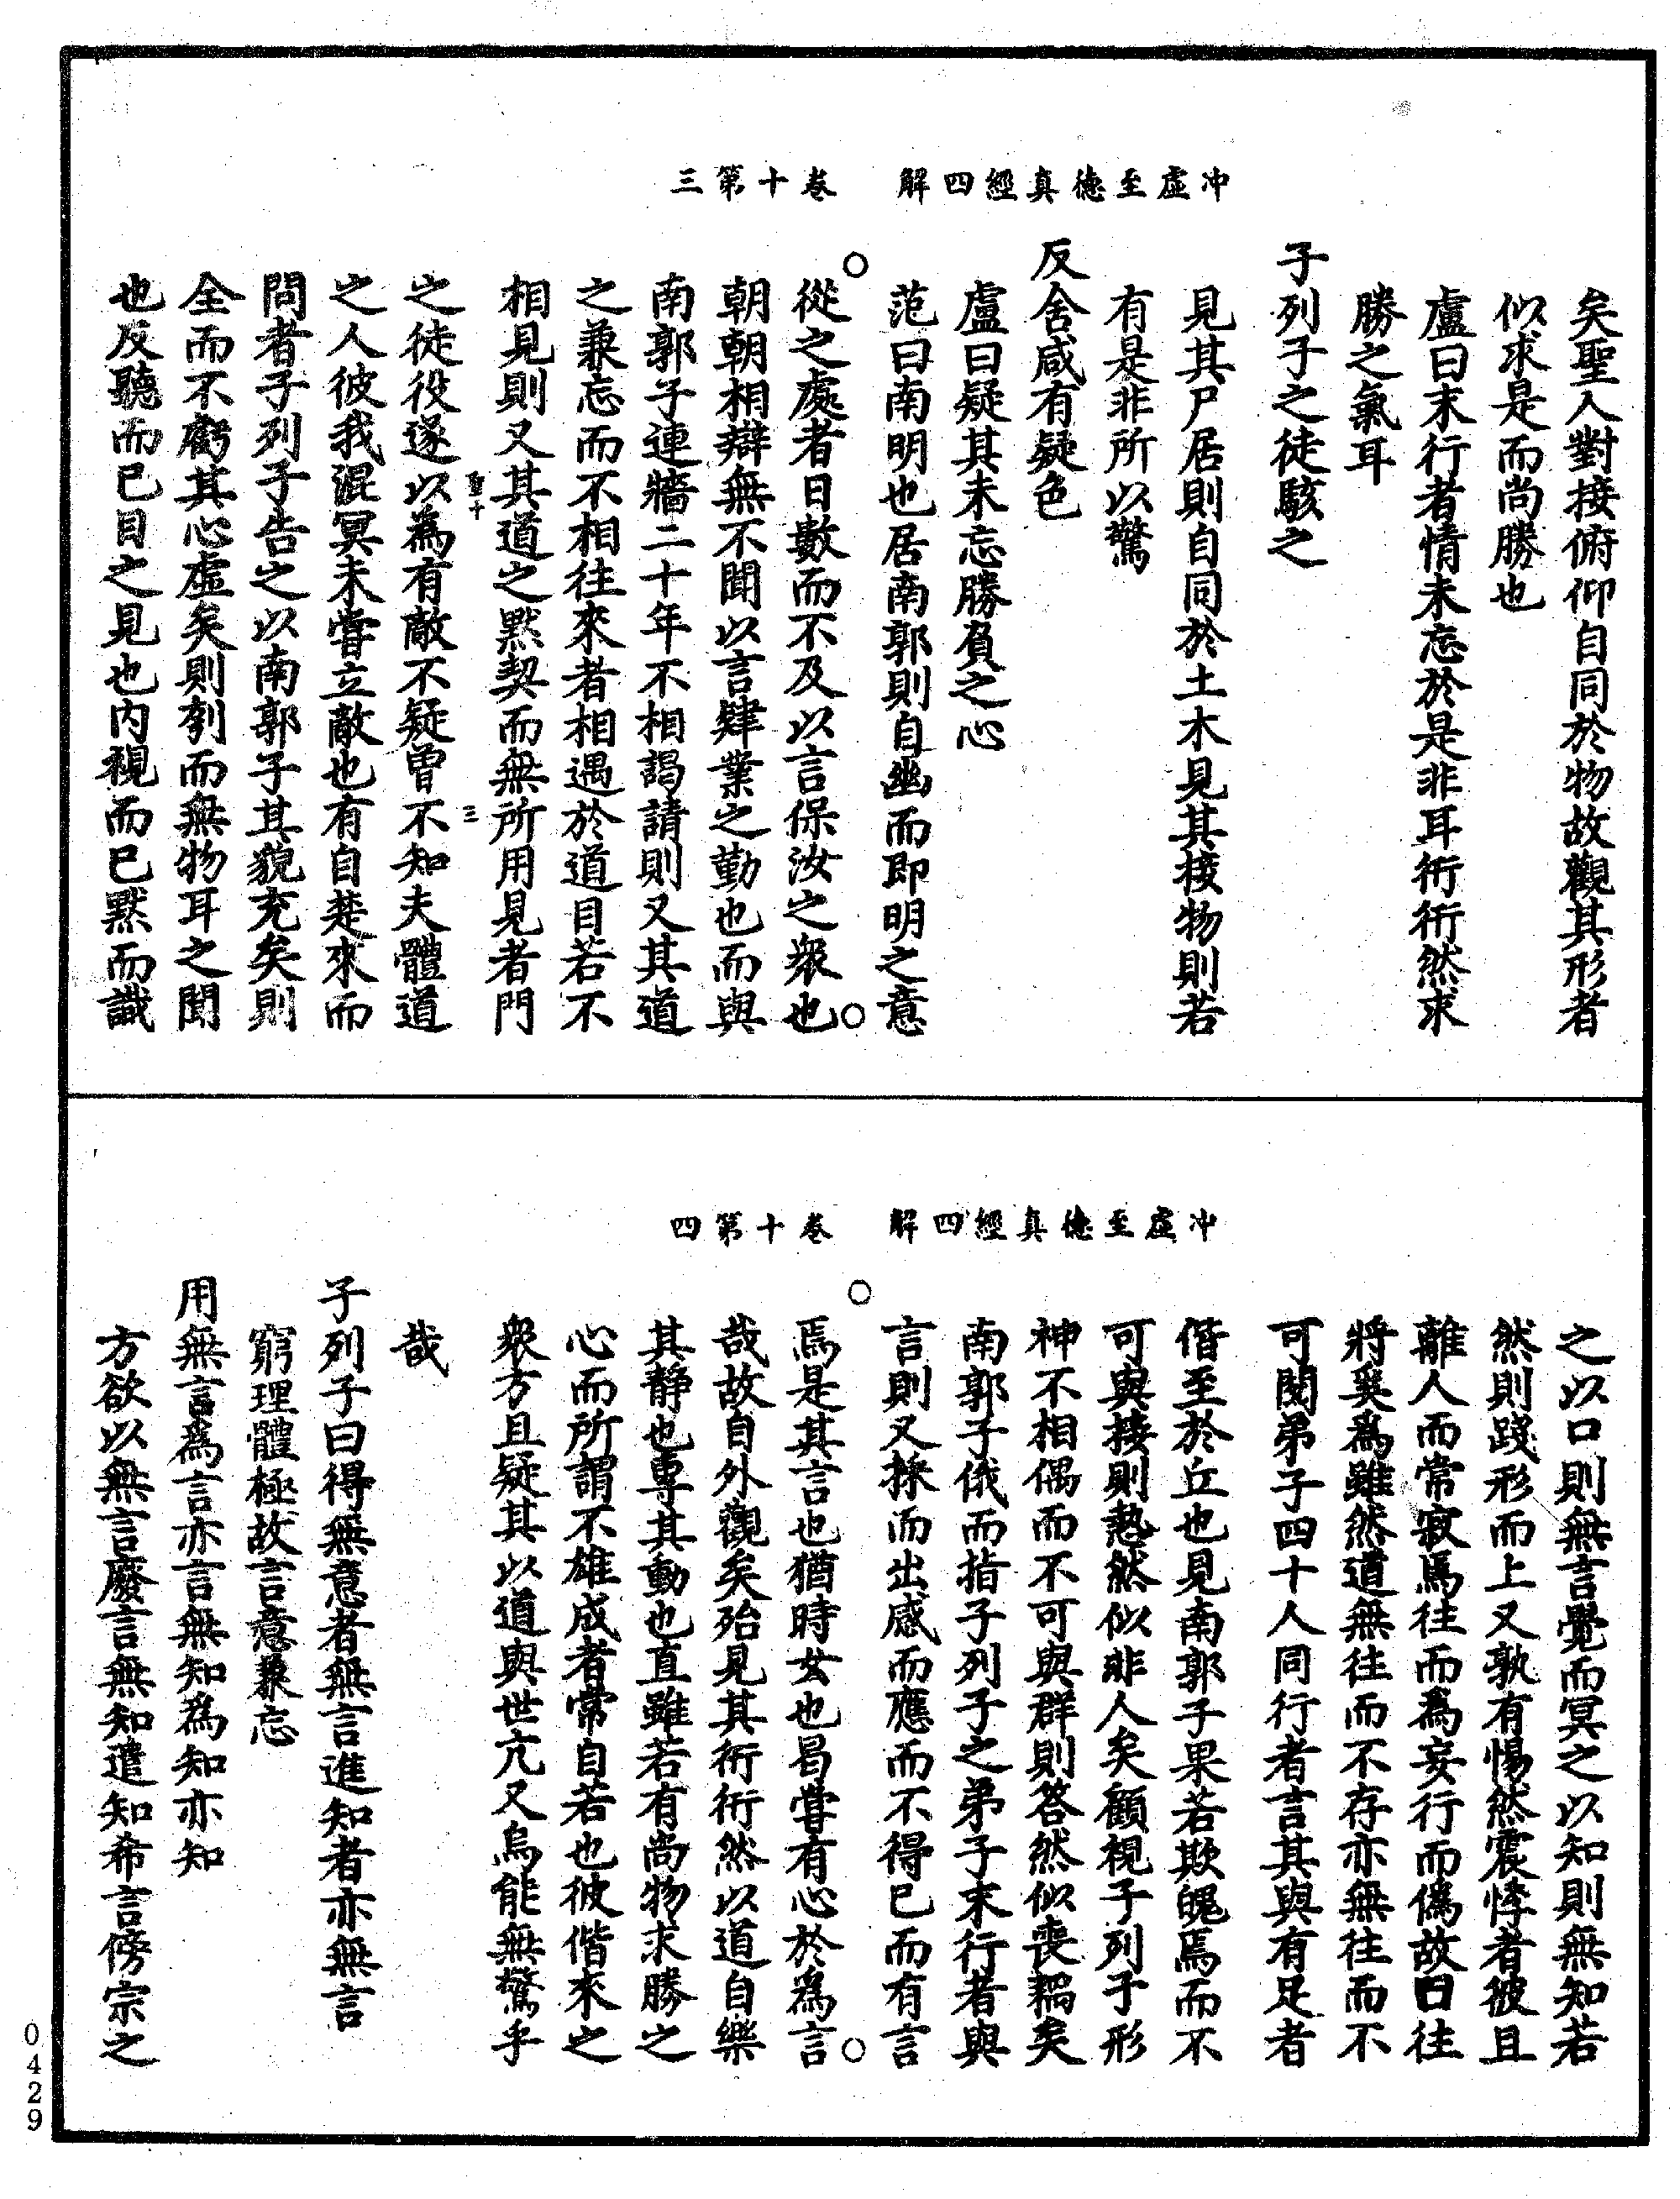 冲虛至德真經四解　卷十第三
矣聖人對接俯仰自同於物故觀其形者
似求是而尚勝也
盧曰末行者情未忘於是非耳衎衎然求
勝之氣耳
子列子之徒駭之
見其尸居則自同於土木見其接物則若
有是非所以驚
反舍咸有疑色
盧曰疑其未忘勝負之心
范曰南明也居南郭則自幽而即明之意
從之處者日數而不及以言保汝之衆也
朝朝相辯無不聞以言肄業之勤也而與
南郭子連牆二十年不相謁請則又其道
之兼忘而不相往來者相遇於道目若不
相見則又其道之黙契而無所用見者門
之徒役遂以為有敵不疑曾不知夫體道
之人彼我混冥未嘗立敵也有自楚來而
問者子列子告之以南郭子其貌充矣則
全而不虧其心虛矣則刳而無物耳之聞
也反聽而已目之見也内視而已黙而識
冲虛至德真經四解　卷十第四
之以口則無言覺而冥之以知則無知若
然則踐形而上又孰有惕然震悸者彼且
離人而常寂焉往而為妄行而偽故曰往
將奚為雖然道無往而不存亦無往而不
可閱弟子四十人同行者言其與有足者
偕至於丘也見南郭子果若欺魄焉而不
可與接則慹然似非人矣顧視子列子形
神不相偶而不可與群則嗒然似喪耦矣
南郭子俄而指子列子之弟子末行者與
言則又採而出感而應而不得已而有言
焉是其言也猶時女也曷嘗有心於為言
哉故自外觀矣殆見其衎衎然以道自樂
其靜也專其動也直雖若有尚物求勝之
心而所謂不雄成者常自若也彼偕來之
衆方且疑其以道與世亢又烏能無驚乎
哉
子列子曰得無意者無言進知者亦無言
窮理體極故言意兼忘
用無言為言亦言無知為知亦知
方欲以無言廢言無知遣知希言傍宗之
0429